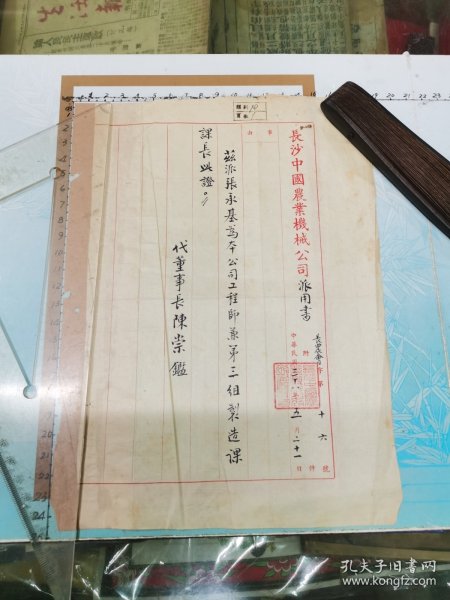 長沙中國農業機械公司派用書
事由
附
字第十六號
中華民國三十八年五月二十一日
茲派張永基為本公司工程師兼第三組製造課
課長此證。
代董事長陳崇鑑
孔夫子旧书网
www.kongfz.com